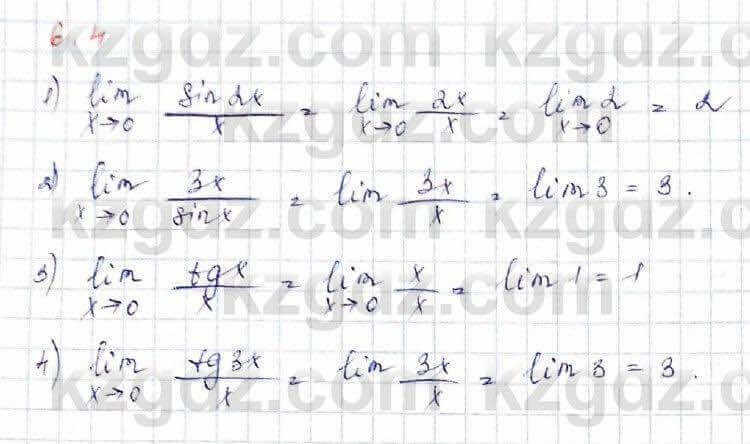 6.4
1) lim x→0 sin 2x / x = lim x→0 2x / x = lim x→0 2 = 2
2) lim x→0 3x / sin x = lim 3x / x = lim 3 = 3.
3) lim x→0 tg x / x = lim x→0 x / x = lim 1 = 1
4) lim x→0 tg 3x / x = lim 3x / x = lim 3 = 3.
kzgdz.com kzgdz.com
kzgdz.com kzgdz.com
kzgdz.com kzgdz.com
kzgdz.com kzgdz.com
kzgdz.com kzgdz.com